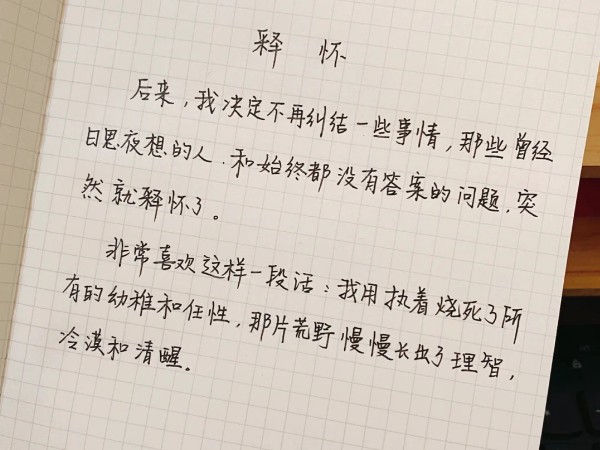 释怀
后来，我决定不再纠结一些事情，那些曾经
日思夜想的人.和始终都没有答案的问题.突
然就释怀了。
非常喜欢这样一段话：我用执着烧死了所
有的幼稚和任性，那片荒野慢慢长出了理智，
冷漠和清醒。